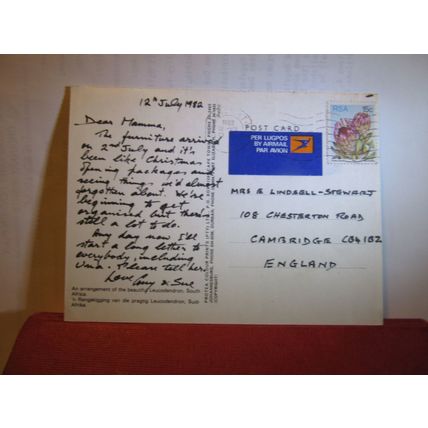 12th July 1982
Dear Mamma,
The furniture arrived
on 2nd July and it's
been like Christmas
opening packages and
seeing things we'd almost
forgotten about. We're
beginning to get
organised but there's
still a lot to do.
Any day now I'll
start a long letter to
everybody, including
Please tell her.
Love Guy & Sue
An arrangement of the beautiful Leucodendron, South
Africa.
'n Rangskikking van die pragtig Leucodendron, Suid-
Afrika.
PROTEA COLOUR PRINTS (PTY) LTD.
JOHANNESBURG, PHONE
(COPYRIGHT)
POST CARD
PER LUGPOS
BY AIRMAIL
PAR AVION
RSA 15c
1982
MRS E LINDSELL-STEWART
108 CHESTERTON ROAD
CAMBRIDGE CB4 1BZ
ENGLAND